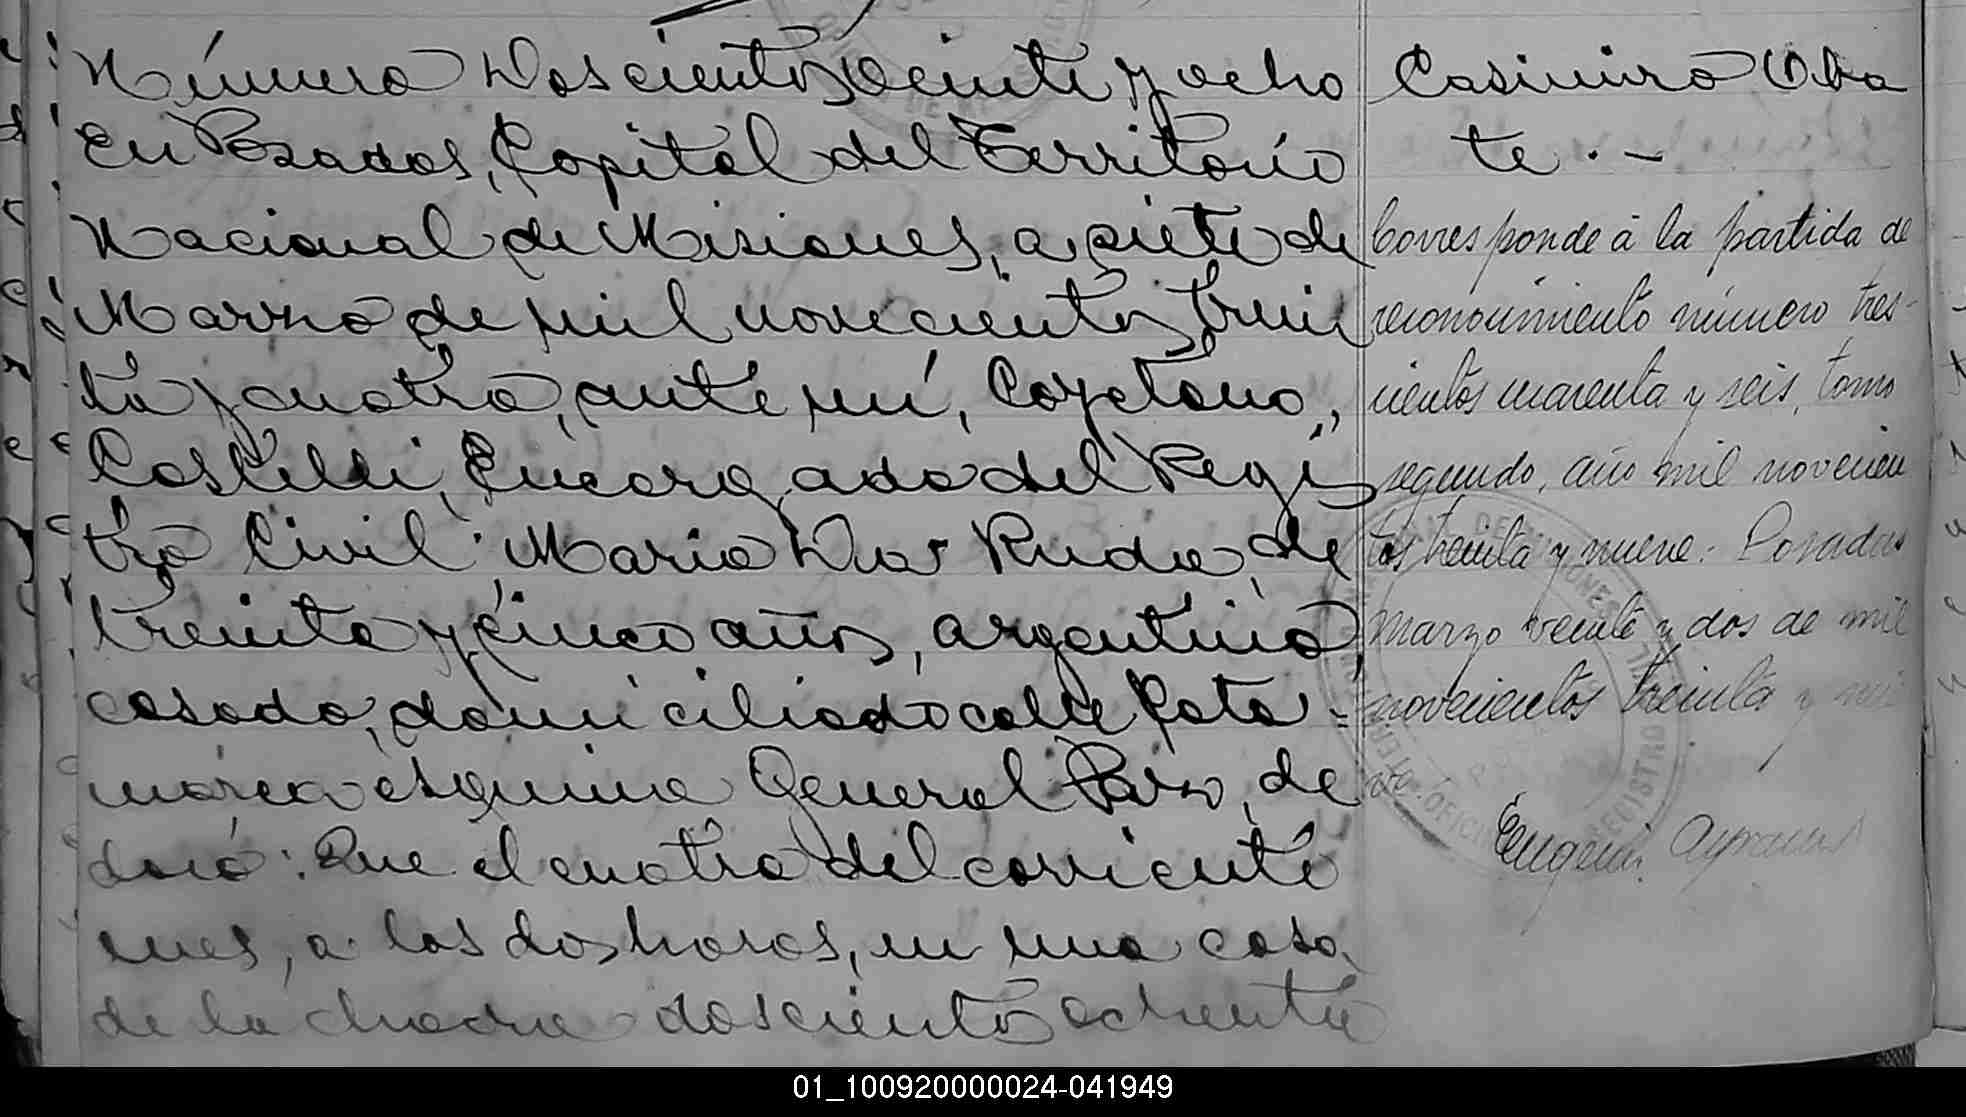 Número Doscientos veinte y ocho
En Posadas, Capital del Territorio
Nacional de Misiones, a siete de
Marzo de mil novecientos trein
ta y cuatro, ante mí, Cayetano,
Castelli, Encargado del Regis
tro Civil: Maria Dos Ruda, de
treinta y cinco años, argentino,
casado, domiciliado calle Cata=
marca esquina General Paz, de
claró: Que el cuatro del corriente
mes, a las dos horas, en una casa
de la chacra doscientos ochenta
Casimiro Oba
te.-
Corresponde á la partida de
reconocimiento número tres-
cientos cuarenta y seis, tomo
segundo, año mil novecien
tos treinta y nueve. Posadas
Marzo veinte y dos de mil
novecientos treinta y nue
ve.
Eugenio
OFICINA REGISTRO CIVIL
DE MISIONES
01_100920000024-041949